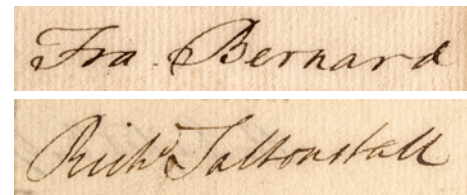 Fra. Bernard
Richd Saltonstall